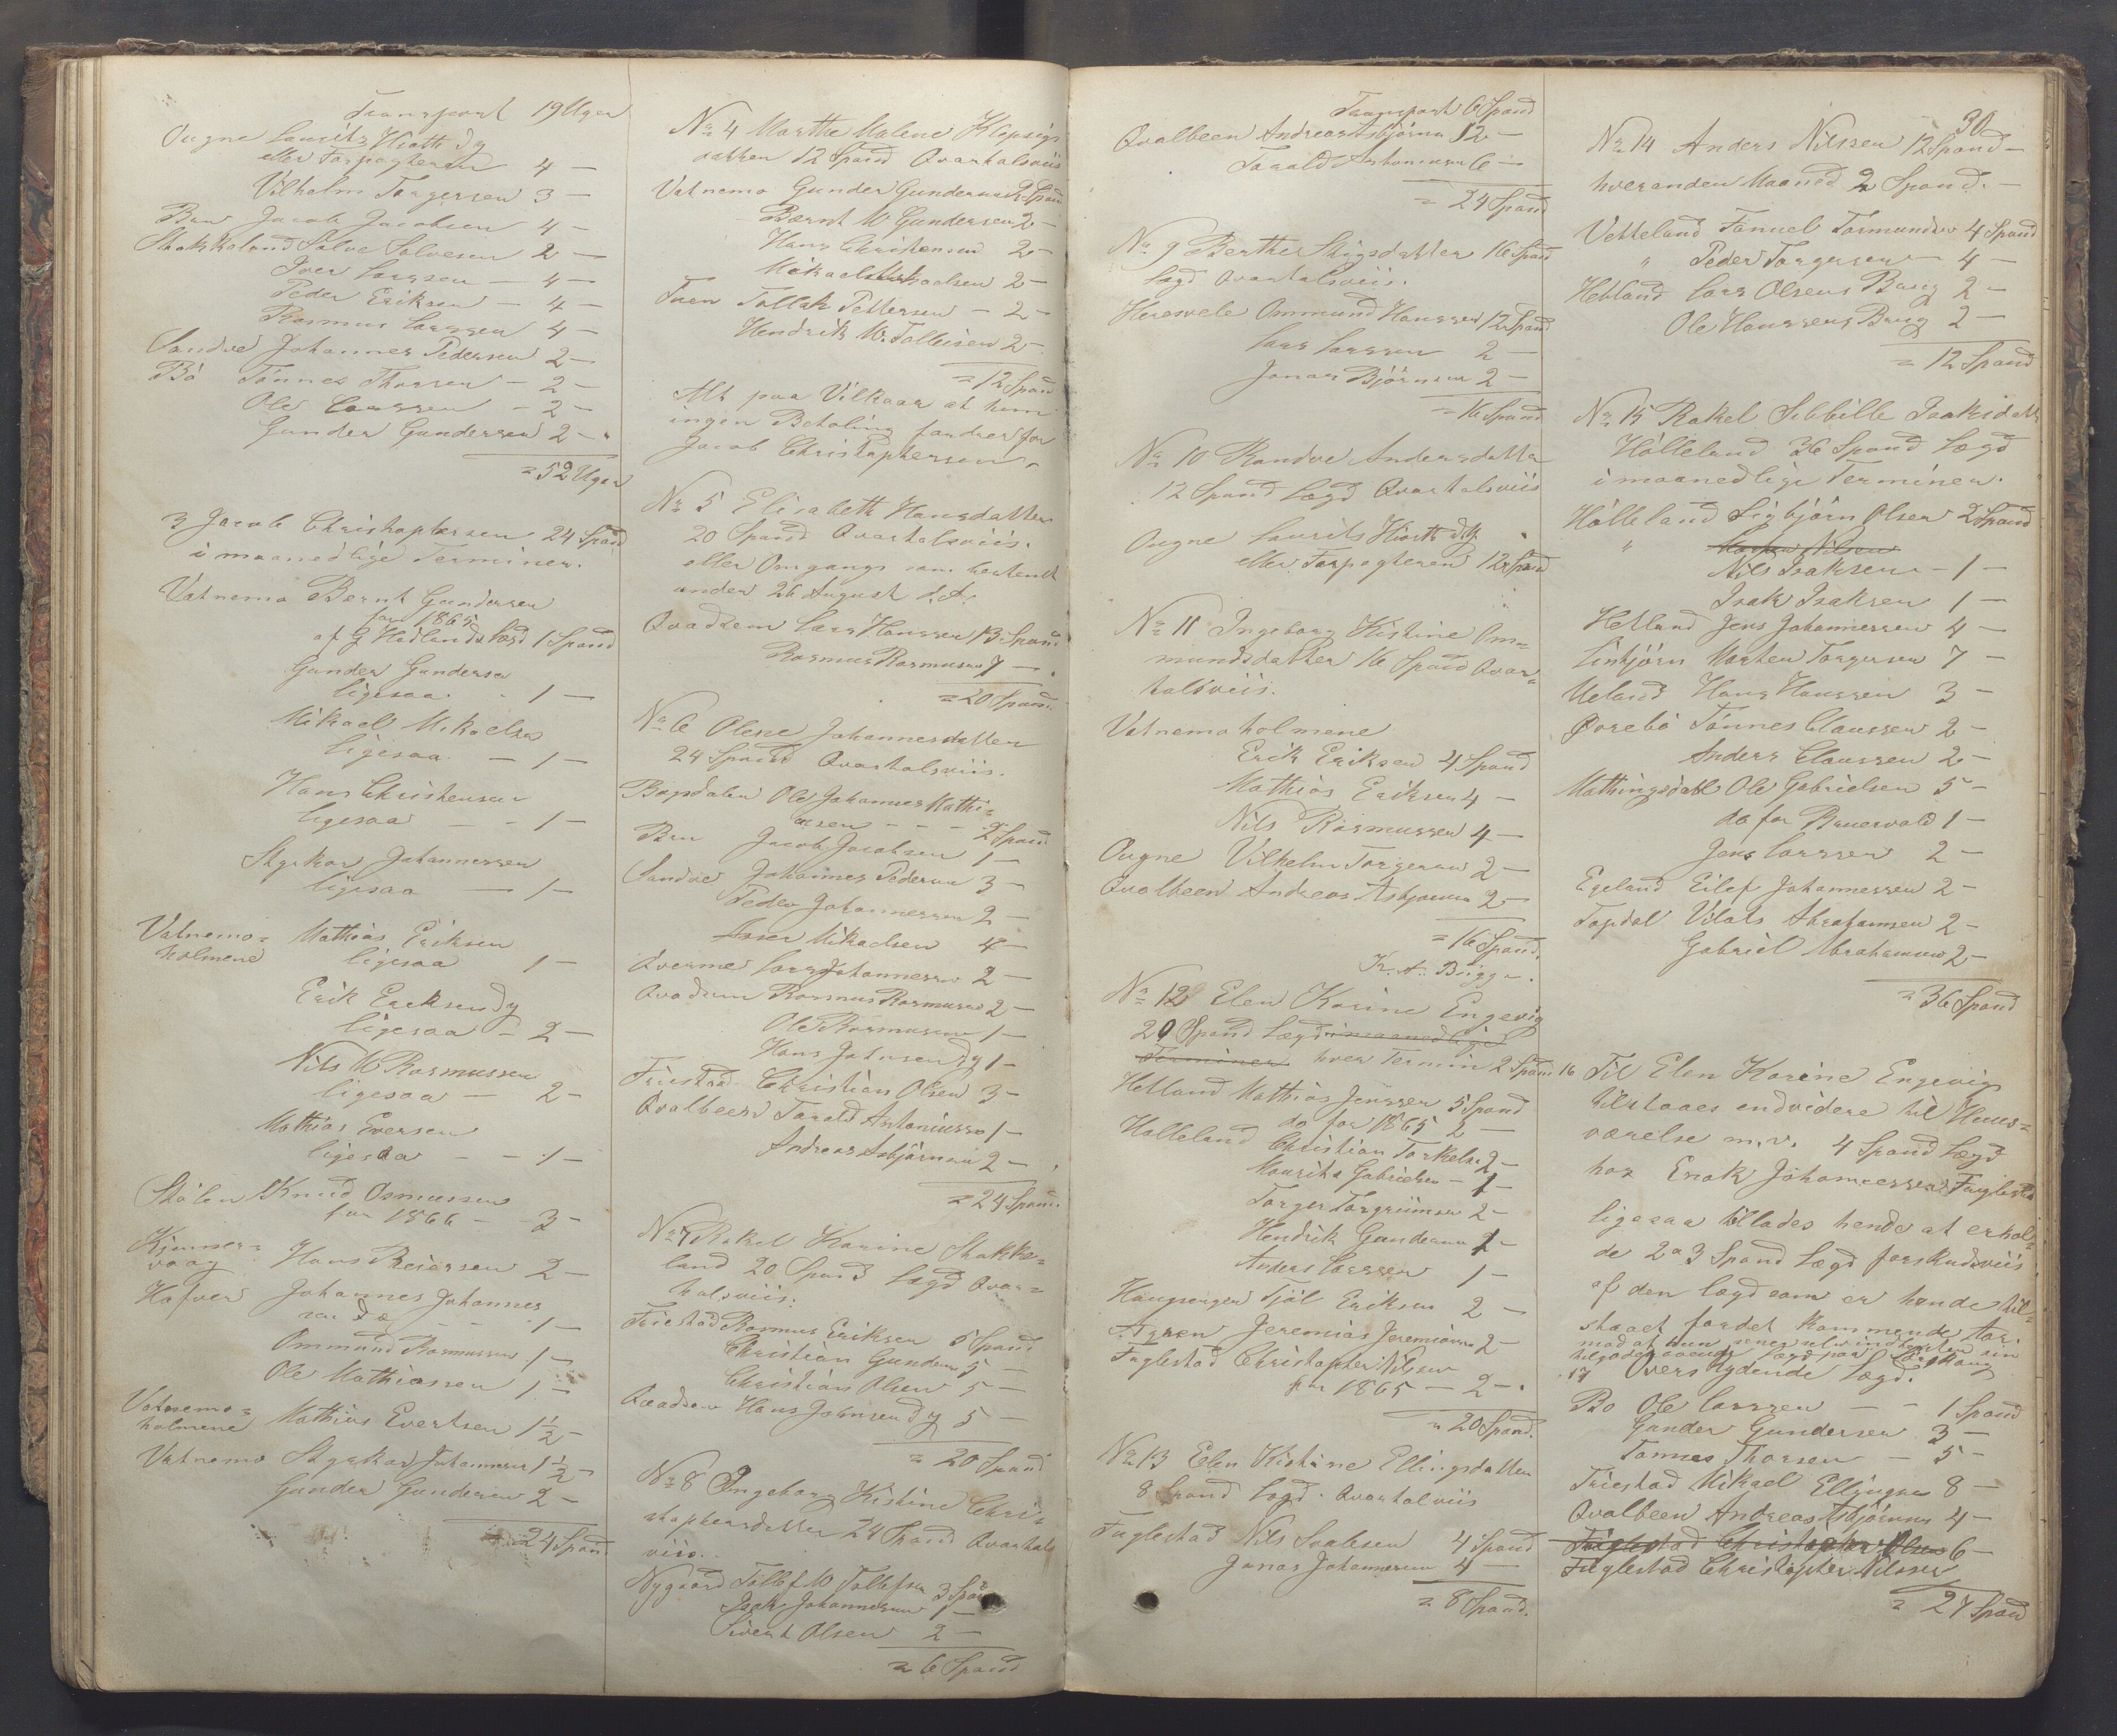 Transport 19 Uger
Ougne Laurits Hiorth Dy
eller Forpagteren 4 —
Vilhelm Torgersen 3 —
Bru Jacob Jacobsen 4 —
Skakkeland Salve Salvesen 2 —
Iver Larssen — 4 —
Peder Eriksen — 4 —
Rasmus Larssen 4 —
Sandve Johannes Pedersen 2 —
Bö Tönnes Thorsen — 2 —
Ole Larssen — 2 —
Gunder Gundersen 2 —
= 52 Uger
3 Jacob Christophersen 24 Spand
i maanedlige Terminer.
Vatnemo Bernt Gundersen
for 1865
af G Hedlands Lægd 1 Spand
Gunder Gundersen
ligesaa - 1 —
Mikael Mikaelsen
ligesaa — 1 —
Hans Christensen
ligesaa — - 1 —
Styrkor Johannessen
ligesaa — 1 —
Vatnemo= Mathias Eriksen
holmene ligesaa 1 —
Erik Eriksen Dy
ligesaa — 2 —
Nils M Rasmussen
ligesaa — 2 —
Mathias Eversen
ligesaa — - 1 —
Stölen Knud Osmussen
for 1866 — - 3 —
Hans Reiersen 2 —
Johannes Johannes
1 —
Ommund Rasmussen 1 —
Ole Mathiassen 1 —
Vatnemo=
holmene Mathias Evertsen 1 1/2 —
Vatnemo Styrkor Johannessen 1 1/2 —
Gunder Gundersen 2 —
= 24 Spand
No 4 Marthe Malene
datter 12 Spand Qvartalsviis
Vatnemo Gunder Gundersen 2 Spand
Bernt M Gundersen 2 —
Hans Christensen 2 —
Mikael Mikaelsen 2 —
Tuen Tollak Pettersen — 2 —
Hendrik M. Tolleisen 2 —
= 12 Spand
Alt paa Vilkaar at hun
ingen Betaling fordrer for
Jacob Christophersen
No 5 Elisabeth Hansdatter
20 Spand Qvartalsviis.
eller Omgangs som bestemt
under 26 August d. A.
Qvadsem Lars Hanssen 13 Spand
Rasmus Rasmussen 7 —
= 20 Spand
No 6 Olene Johannesdatter
24 Spand Qvartalsviis.
Bogsdalen Ole Johannes Mathi=
asen — - - 2 Spand
Bru Jacob Jacobsen 1 —
Sandve Johannes Pedersen 3 —
Peder Johannessen 2 —
Mikaelsen 4 —
Qverme Lars Johannessen 2 —
Qvadsem Rasmus Rasmussen 2 —
Ole Rasmussen 1 —
Hans Johnsen Dy 1 —
Friestad Christian Olsen 3 —
Qvalbeen Tarald Antoniussen 1 —
Andreas Asbjörnsen 2 —
= 24 Spand.
No 7 Rakel Karine Skakke=
land 20 Spand Lægd Qvar=
talsviis.
Friestad Rasmus Eriksen 5 Spand
Christian Gundersen 5 —
Christian Olsen 5 —
Qvadsem Hans Johnsen Dy 5 —
= 20 Spand
No 8 Ingeborg Kistine Chri=
stophersdatter 24 Spand Qvartals
viis.
Nygaard Tollef M Tollefsen 3 Spand
Isak Johannessen 1 —
Sivert Olsen 2 —
= 6 Spand
Transport 6 Spand
Qvalbeen Andreas Asbjörnsen 12 —
Tarald Antoniussen 6 —
= 24 Spand
No 9 Berthe Stigsdatter 16 Spand
Lægd Qvartalsviis.
Heresvele Ommund Hanssen 12 Spand
Lars Larssen 2 —
Jonas Björnsen 2 —
= 16 Spand
No 10 Randve Andersdatter
12 Spand Lægd Qvartalsviis
Ougne Laurits Hiorth Dy
eller Forpagteren 12 Spand
No 11 Ingeborg Kistine Om=
mundsdatter 16 Spand Qvar=
talsviis.
Vatnemoholmene
Erik Eriksen 4 Spand
Mathias Eriksen 4 —
Nils Rasmussen 4 —
Ougne Vilhelm Torgersen 2 —
Qvalbeen Andreas Asbjörnsen 2 —
= 16 Spand.
No 12 Elen Karine Engevig
20 Spand Lægd i maanedlige
Terminer hver Termin 2 Spand
Hetland Mathias Jenssen 5 Spand
do for 1865 2 —
Holleland Christian Torkelsen 2 —
Maurits Gabrielsen — 1 —
Torger Torgrimsen 2 —
Hendrik Gundersen 1 —
Anders Larssen 1 —
Eriksen 2 —
Jeremias Jeremiassen 2 —
Fuglestad Christopher Nilssen
for 1865 — 2 —
= 20 Spand.
No 13 Elen Kistine Ellingsdatter
8 Spand Lægd. Qvartalviis
Fuglestad Nils Salvesen 4 Spand
Jonas Johannessen 4 —
= 8 Spand.
30
No 14 Anders Nilssen 12 Spand —
hveranden Maaned 2 Spand. —
Vetteland Tønnel Tormundsen 4 Spand
" Peder Torgersen — 4 —
Hetland Lars Olsens Brug 2 —
Ole Hanssens Brug 2 —
= 12 Spand
No 15 Rakel Sibbille Isaksdatter
Hölleland 36 Spand Lægd
i maanedlige Terminer.
Hölleland Sigbjörn Olsen 2 Spand
" Nilsen
Nils Isaksen — 1 —
Isak Isaksen 1 —
Hetland Jens Johannessen 4 —
Linbjörn Morten Torgersen 7 —
Ueland Hans Hanssen 3 —
Qvrebö Tönnes Claussen 2 —
Anders Claussen 2 —
Mathingsdal Ole Gabrielsen 5 —
do for 1 —
Jens Larssen 2 —
Egeland Eilef Johannessen 2 —
Topdal Vilats Abrahamsen 2 —
Gabriel Abrahamsen 2 —
= 36 Spand
16 Til Elen Karine Engevig
tilstaaes endvidere til Huus=
værelse m.v. 4 Spand Lægd
hos Enok Johannessen Fuglestad
ligesaa tillades hende at erhol=
de 2 a 3 Spand Lægd forskudsviis
af den Lægd som er hende til=
staaet for det kommende Aar.
17 Overskydende Lægd.
Bö Ole Larssen — - 1 Spand
Gunder Gundersen 3 —
Tönnes Thorsen — 5 —
Friestad Mikael Ellingsen 8 —
Qvalbeen Andreas Asbjörnsen 4 —
Fuglestad Christopher Olsen 6 —
Fuglestad Christopher Nilssen
= 27 Spand